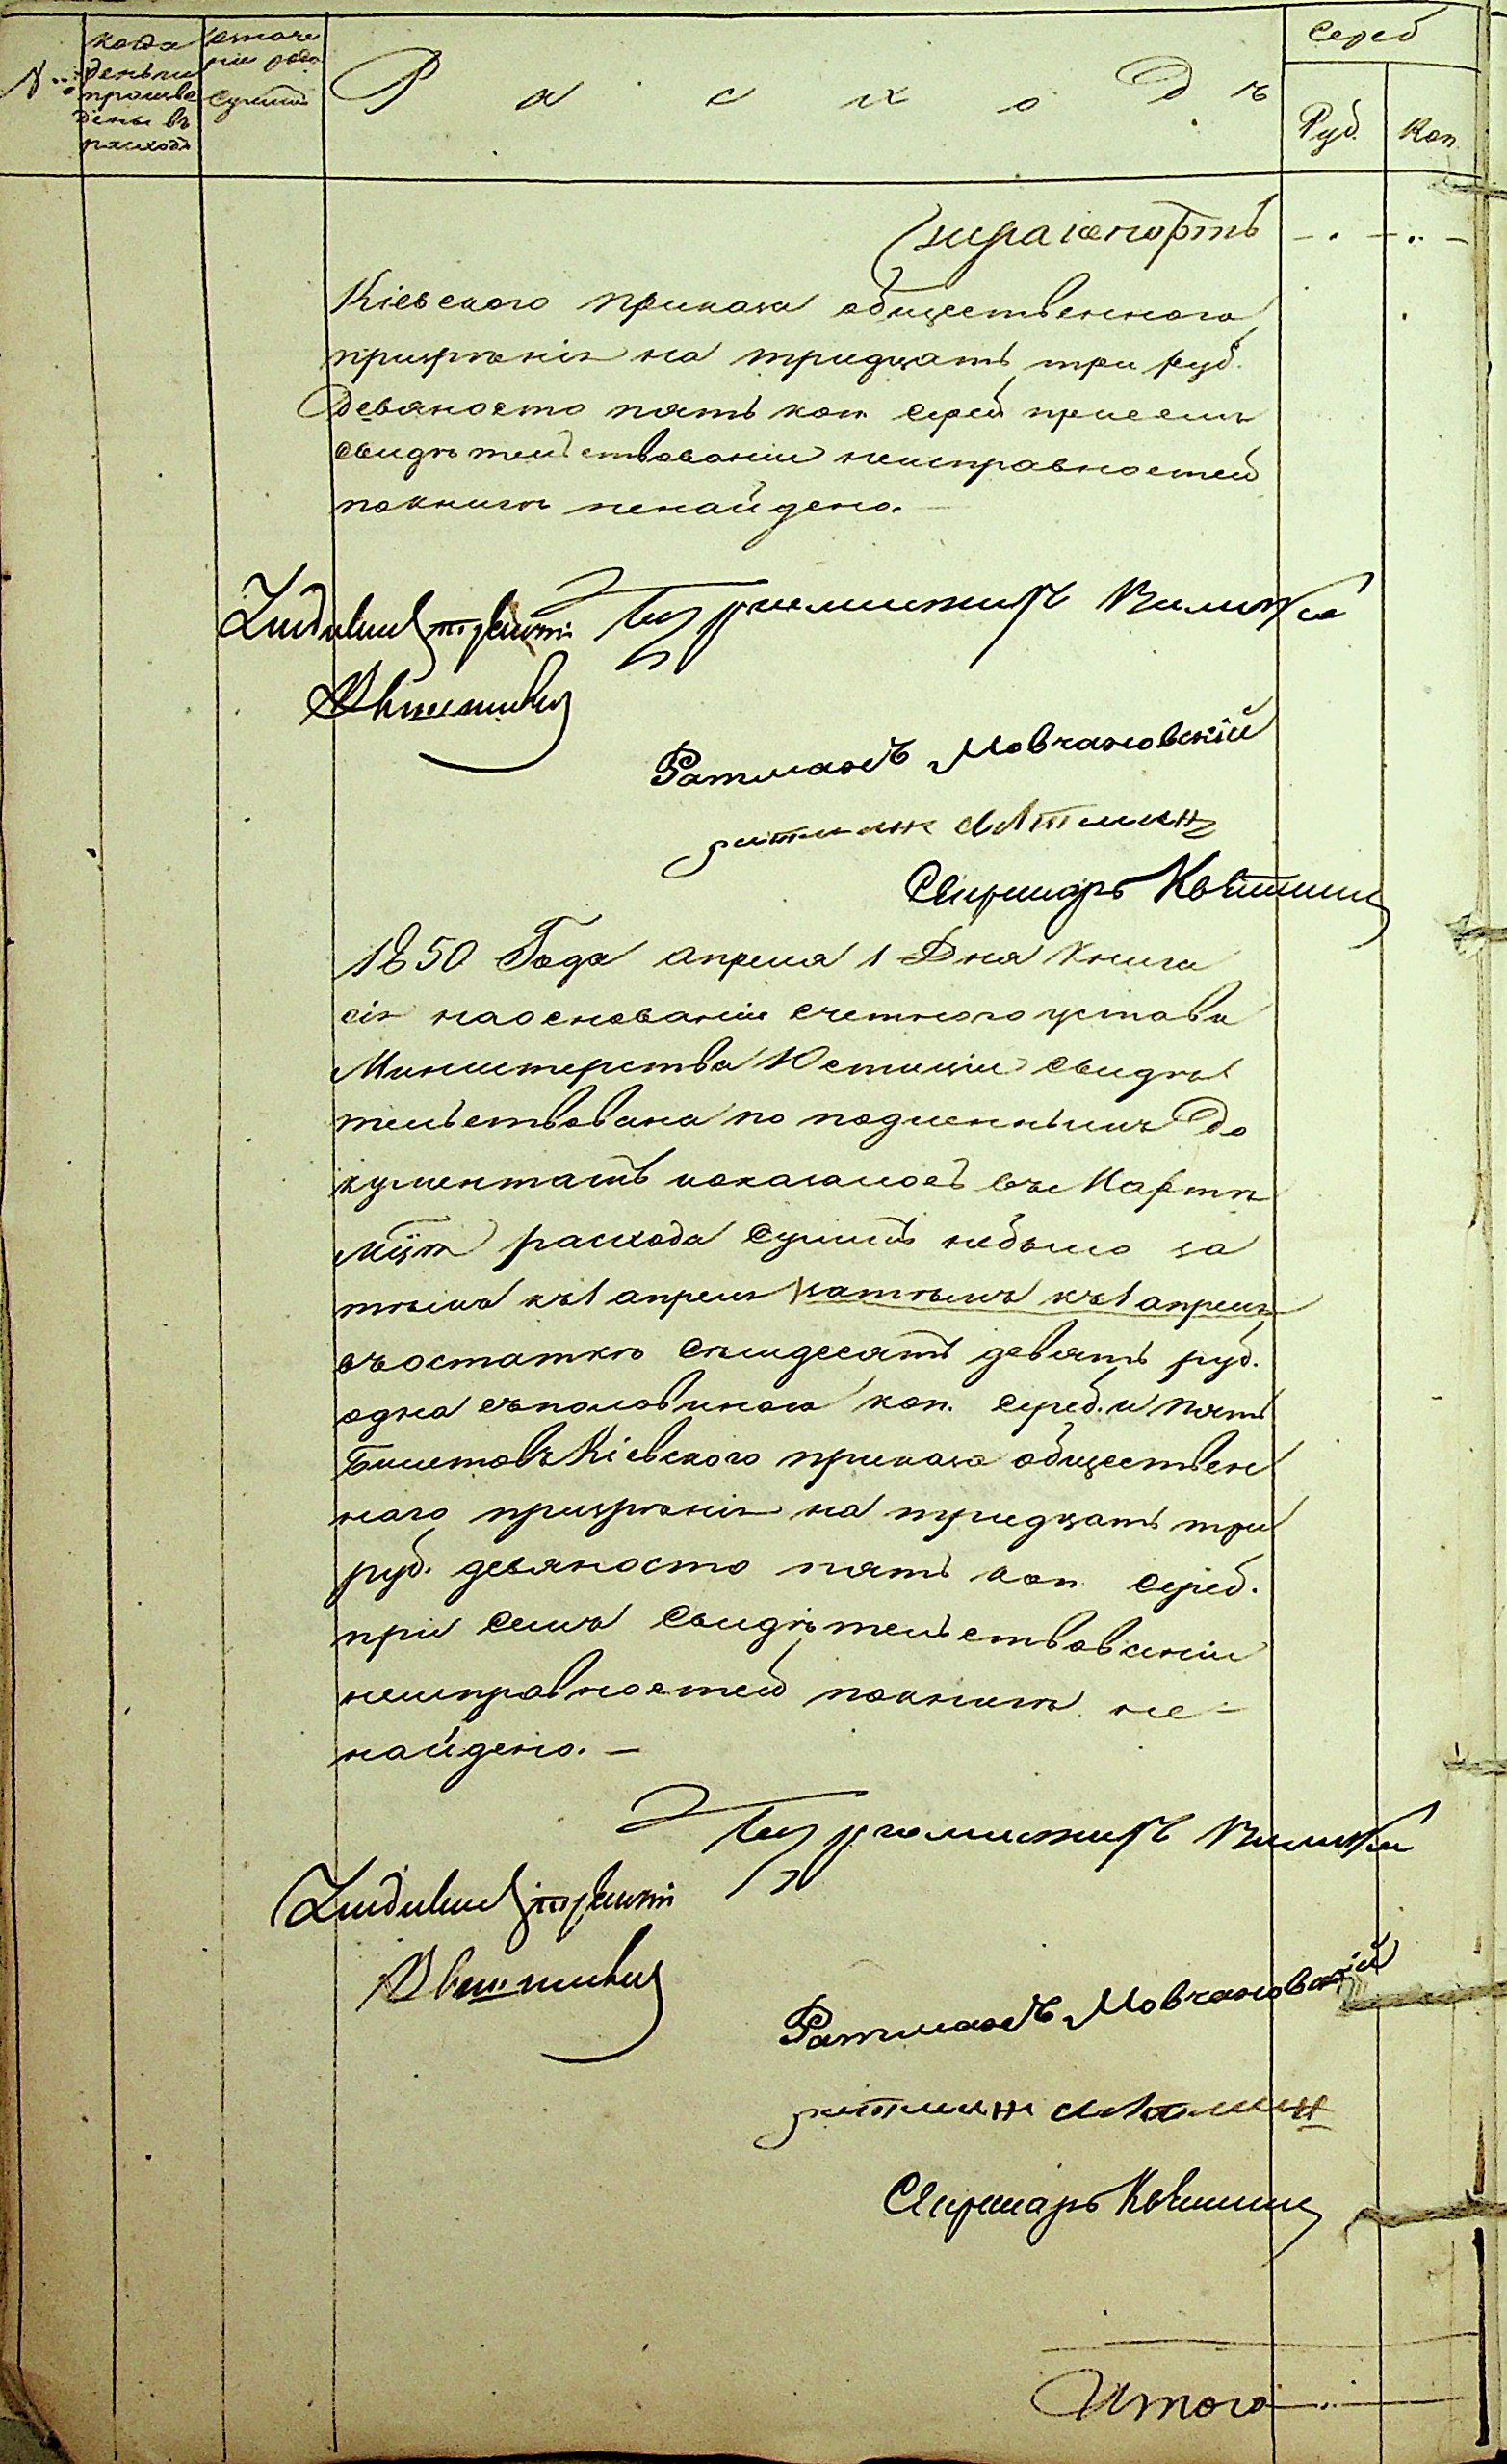 №
когда деньги произведены въ расходъ
означеніе рода суммы
Расходъ
Сереб
Руб.
Коп.
Транспортъ
Кіевского приказа общественного
призрѣнія на тридцать три руб.
девяносто пять коп. сереб. при семъ
свидѣтельствованіи неисправностей
покнигѣ ненайдено.
Бургомистръ
Ратманъ Мовчановскій
ратман
Секретарь
1850 Года апреля 1 Дня Книга
сія наоснованіи счетного устава
Министерства Юстиціи свидѣ
тельствована по подленнымъ до
кументамъ показалось въ Мартѣ
мцѣ расхода суммъ небыло за
тѣмъ къ 1 апреля затѣмъ къ 1 апреля
въ остаткѣ семдесятъ девять руб.
одна съполовиною коп. сереб. и пять
Билетовъ Кіевского приказа обществен
ного призрѣнія на тридцать три
руб. девяносто пять коп. сереб.
при семъ свидѣтельствованіи
неисправностей покнигѣ не-
найдено. —
Бургомистръ
Ратманъ Мовчановскій
ратман
Секретарь
Итого